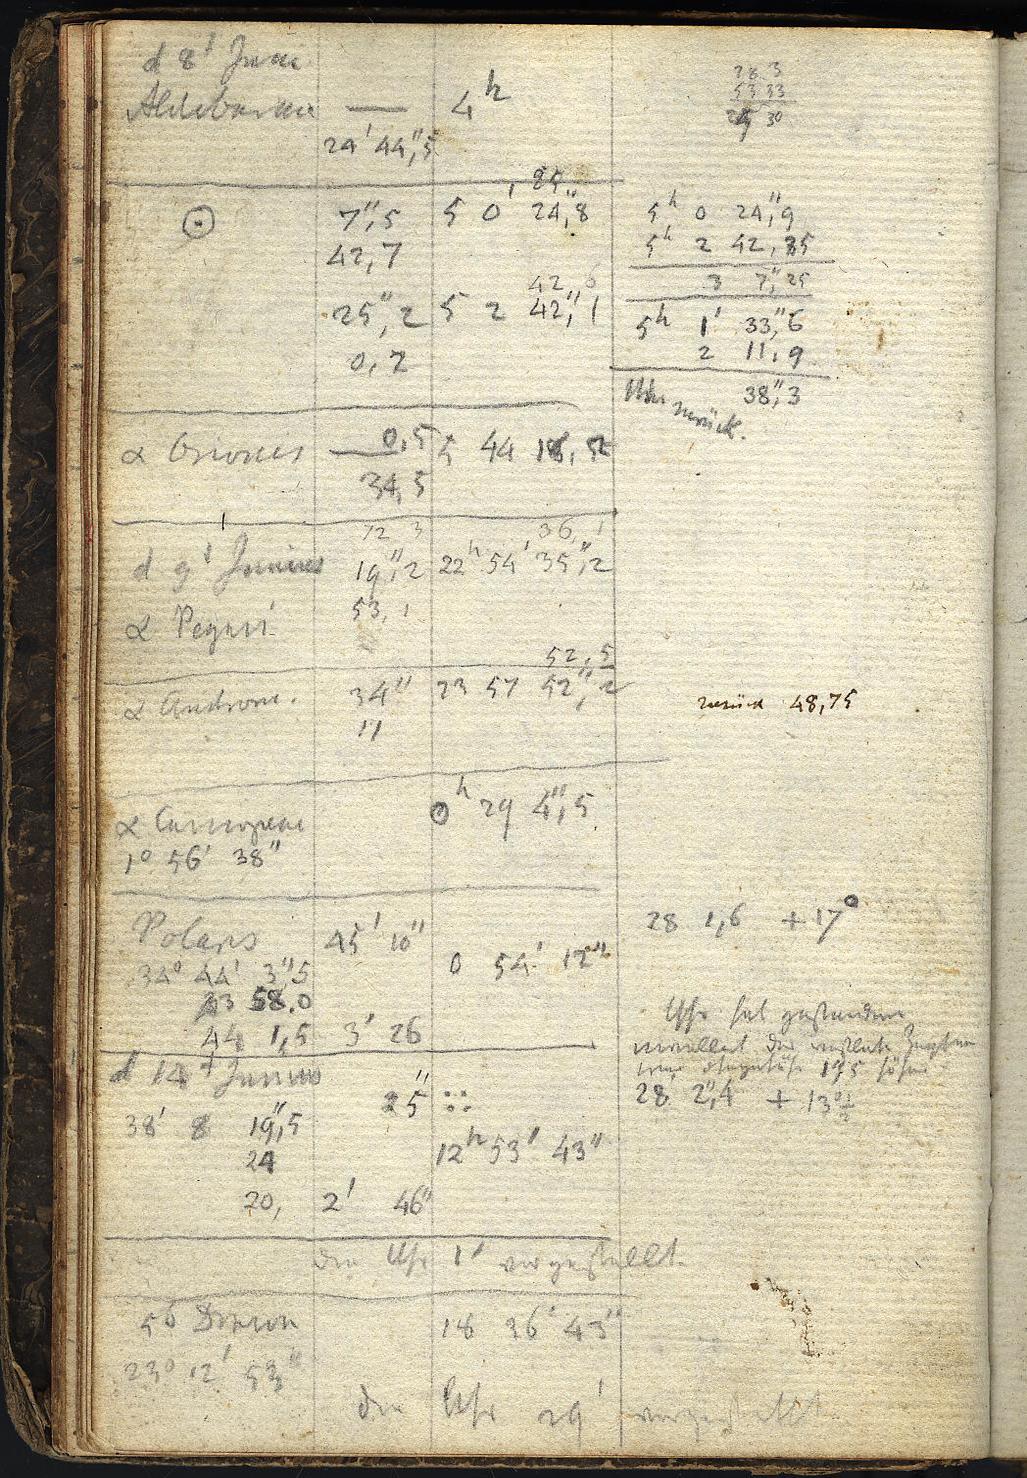 d 8 Juni
Aldebaran — 4h
24' 44",5
28 3
53 33
30
⊙ 7",5 5 0' 24",8
42,7
42 6
25",2 5 2 42",1
0,2
5h 0 24",9
5h 2 42,35
3 7",25
5h 1' 33",6
2 11,9
38",3
Uhr zurück.
α Orionis 0,5 5 44 18,5
34,5
72 3 36,1
d 9 Junius 19",2 22h 54' 35",2
α Pegasi 53,1
52,5
α Androm. 34" 23 57 52",2
11
zurück 48,75
α Cassiopeae 0h 29 4",5
1° 56' 38"
Polaris 45' 10" 0 54' 12"
34° 44' 3"5
43 58.0
44 1,5 3' 26
28 1,6 +17°
Uhr hat gestanden
28 2",4 + 13°½
d 14 Junius 25" ::
38' 8 19",5
24 12h 53' 43"
20, 2' 46"
die Uhr 1' vorgestellt.
5b Dracon 18 36' 43"
23° 12' 53"
die Uhr 29' vorgestellt